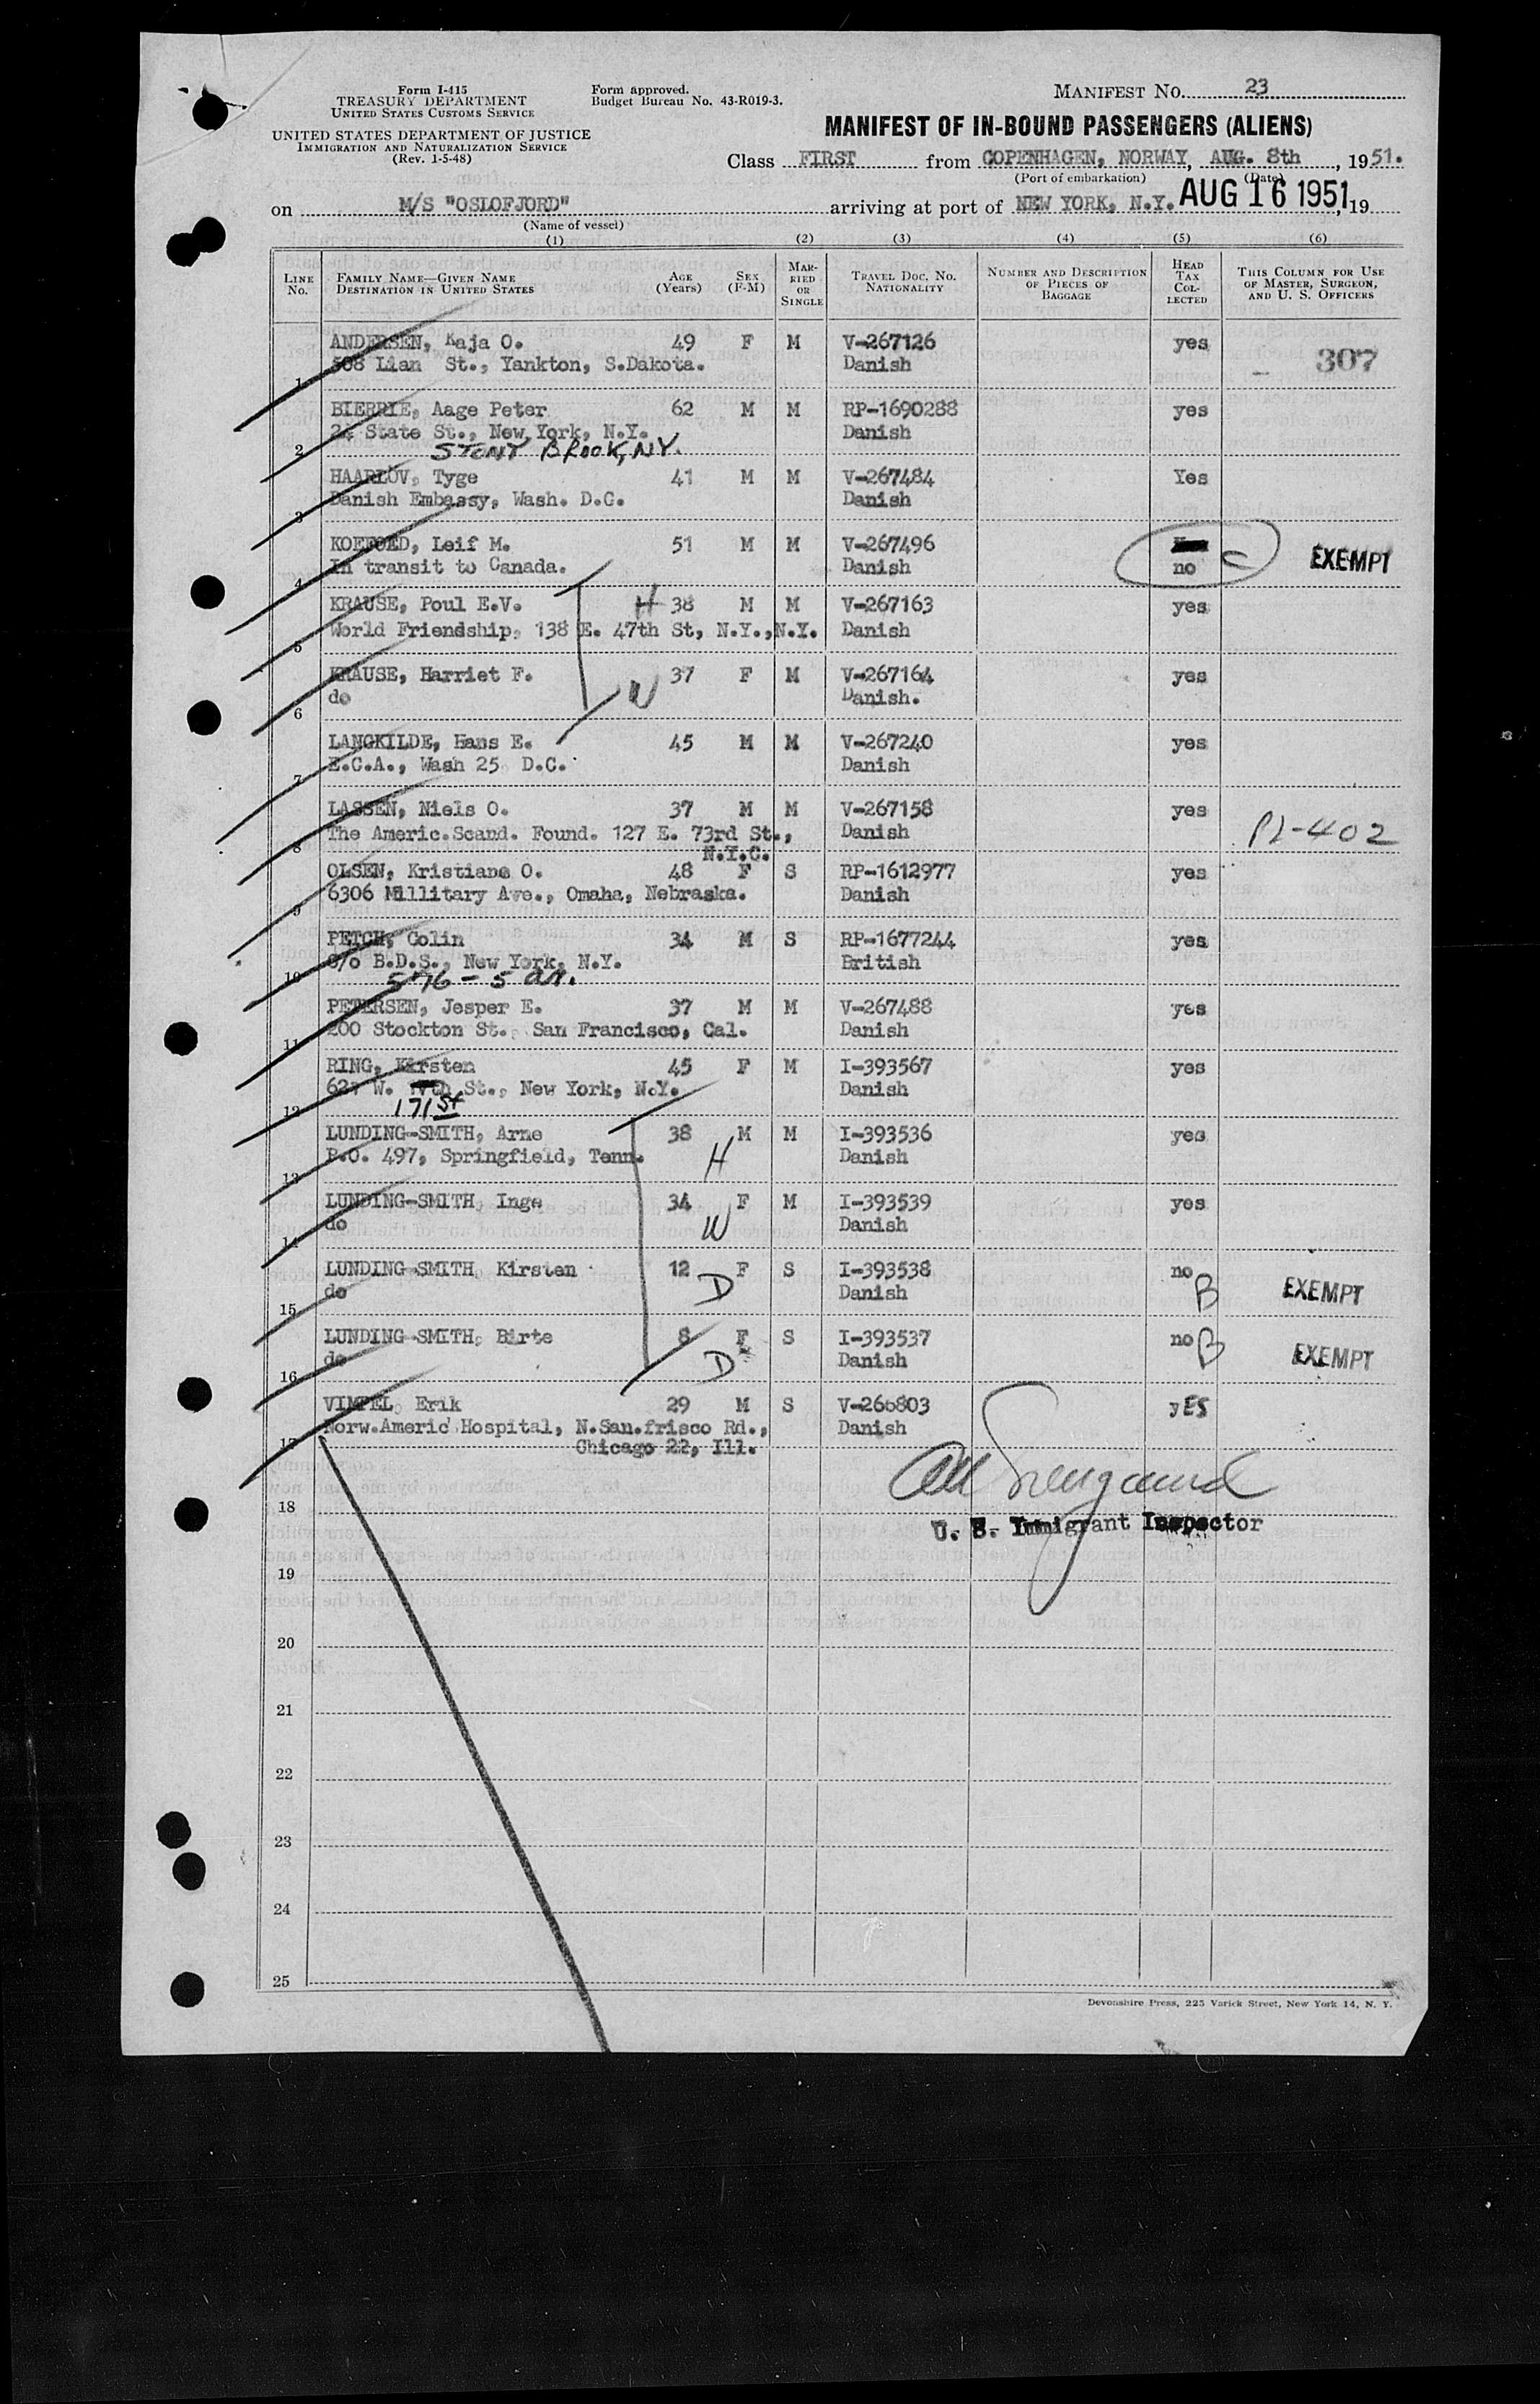 Form I-415
TREASURY DEPARTMENT
UNITED STATES CUSTOMS SERVICE
UNITED STATES DEPARTMENT OF JUSTICE
IMMIGRATION AND NATURALIZATION SERVICE
(Rev. 1-5-48)
Form approved.
Budget Bureau No. 43-R019-3.
MANIFEST NO. 23
MANIFEST OF IN-BOUND PASSENGERS (ALIENS)
Class FIRST from COPENHAGEN, NORWAY, AUG. 8th, 1951.
(Port of embarkation) (Date)
on M/S "OSLOFJORD" arriving at port of NEW YORK, N.Y. AUG 16 1951, 19
(Name of vessel)
(1) (2) (3) (4) (5) (6)
LINE NO. FAMILY NAME—GIVEN NAME DESTINATION IN UNITED STATES AGE (Years) SEX (F-M) MARRIED OR SINGLE TRAVEL DOC. NO. NATIONALITY NUMBER AND DESCRIPTION OF PIECES OF BAGGAGE HEAD TAX COLLECTED THIS COLUMN FOR USE OF MASTER, SURGEON, AND U. S. OFFICERS
ANDERSEN, Kaja O. 49 F M V-267126 yes 307
1 508 Lian St., Yankton, S.Dakota. Danish
BIERRIE, Aage Peter 62 M M RP-1690288 yes
24 State St., New York, N.Y. Danish
2 STONY BROOK, NY.
HAARLOV, Tyge 41 M M V-267484 Yes
3 Danish Embassy, Wash. D.C. Danish
KOEFOED, Leif M. 51 M M V-267496
4 In transit to Canada. Danish no C EXEMPT
KRAUSE, Poul E.V. H 38 M M V-267163 yes
5 World Friendship, 138 E. 47th St, N.Y., N.Y. Danish
KRAUSE, Harriet F. W 37 F M V-267164 yes
6 do Danish.
LANGKILDE, Hans E. 45 M M V-267240 yes
7 E.C.A., Wash 25 D.C. Danish
LASSEN, Niels O. 37 M M V-267158 yes
8 The Americ.Scand. Found. 127 E. 73rd St., Danish
N.Y.C.
OLSEN, Kristiane O. 48 F S RP-1612977 yes
9 6306 Millitary Ave., Omaha, Nebraska. Danish
PETCH, Colin 34 M S RP-1677244 yes
10 C/o B.D.S., New York, N.Y. British
576 - 5 av.
PETERSEN, Jesper E. 37 M M V-267488 yes
11 200 Stockton St., San Francisco, Cal. Danish
RING, Kirsten 45 F M I-393567 yes
627 W. St., New York, N.Y. Danish
12 171 St
LUNDING-SMITH, Arne 38 M M I-393536 yes
13 P.O. 497, Springfield, Tenn. H Danish
LUNDING-SMITH, Inge 34 F M I-393539 yes
14 do W Danish
LUNDING-SMITH, Kirsten 12 F S I-393538 no
15 do D Danish B EXEMPT
LUNDING-SMITH, Birte 8 F S I-393537 no B
16 do D Danish EXEMPT
VIMPEL, Erik 29 M S V-266803 yES
17 Norw.Americ.Hospital, N.San.frisco Rd., Danish
Chicago 22, Ill.
18
U. S. Immigrant Inspector
19
20
21
22
23
24
25
Devonshire Press, 225 Varick Street, New York 14, N. Y.